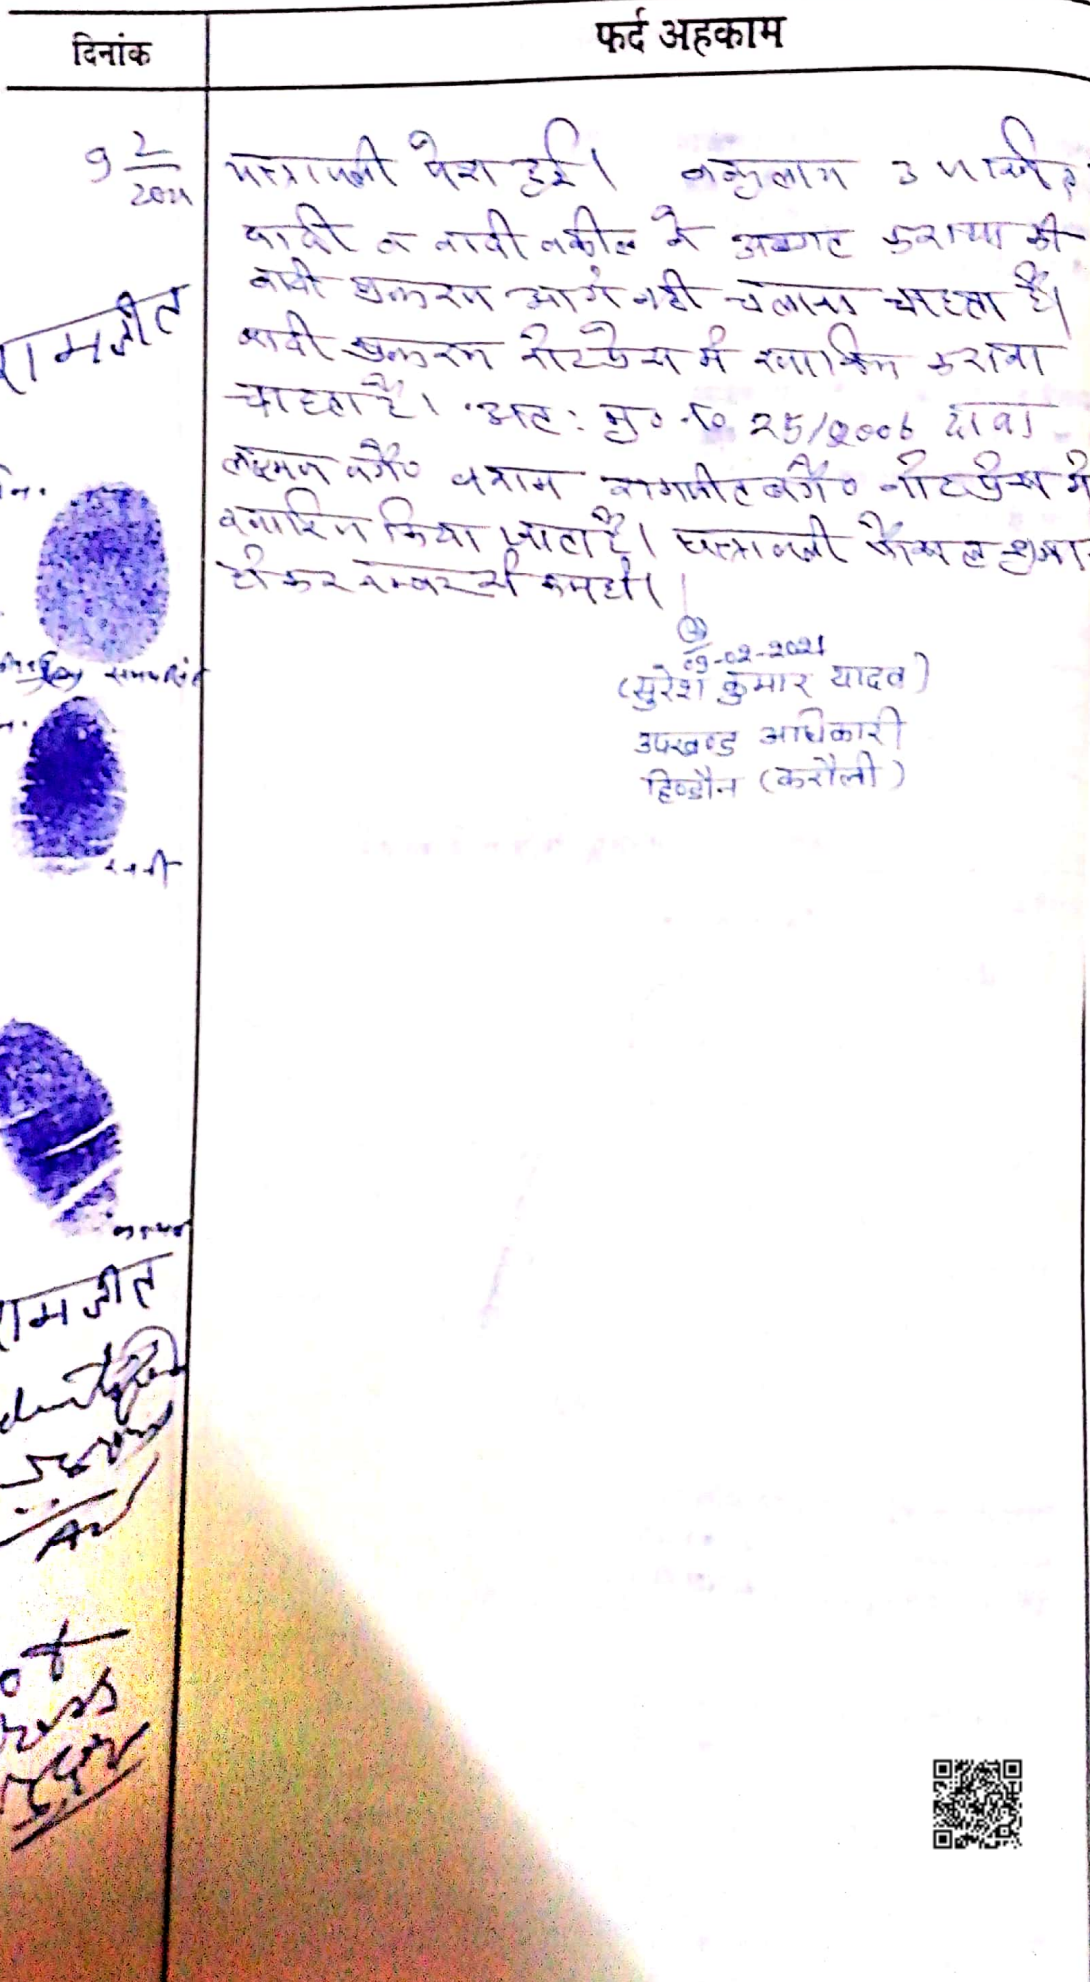 दिनांक
फर्द अहकाम
9 2/2021
पत्रावली पेश हुई। वकुलाय उपस्थित
वादी व वादी वकील ने अवगत कराया की
वादी प्रकरण आगे नही चलाना चाहता है।
वादी प्रकरण नोटप्रेस मे खारिज कराना
चाहता है। अत: मु० न० 25/2006 दावा
लक्ष्मण वगै० बनाम रामजीत वगै० नोटप्रेस मे
खारिज किया जाता है। पत्रावली फैसल शुमार
होकर नम्बर से कम हो।
09-02-2021
(सुरेश कुमार यादव)
उपखण्ड अधिकारी
हिण्डौन (करौली)
रामजीत
नि.
रामजीत
Adv